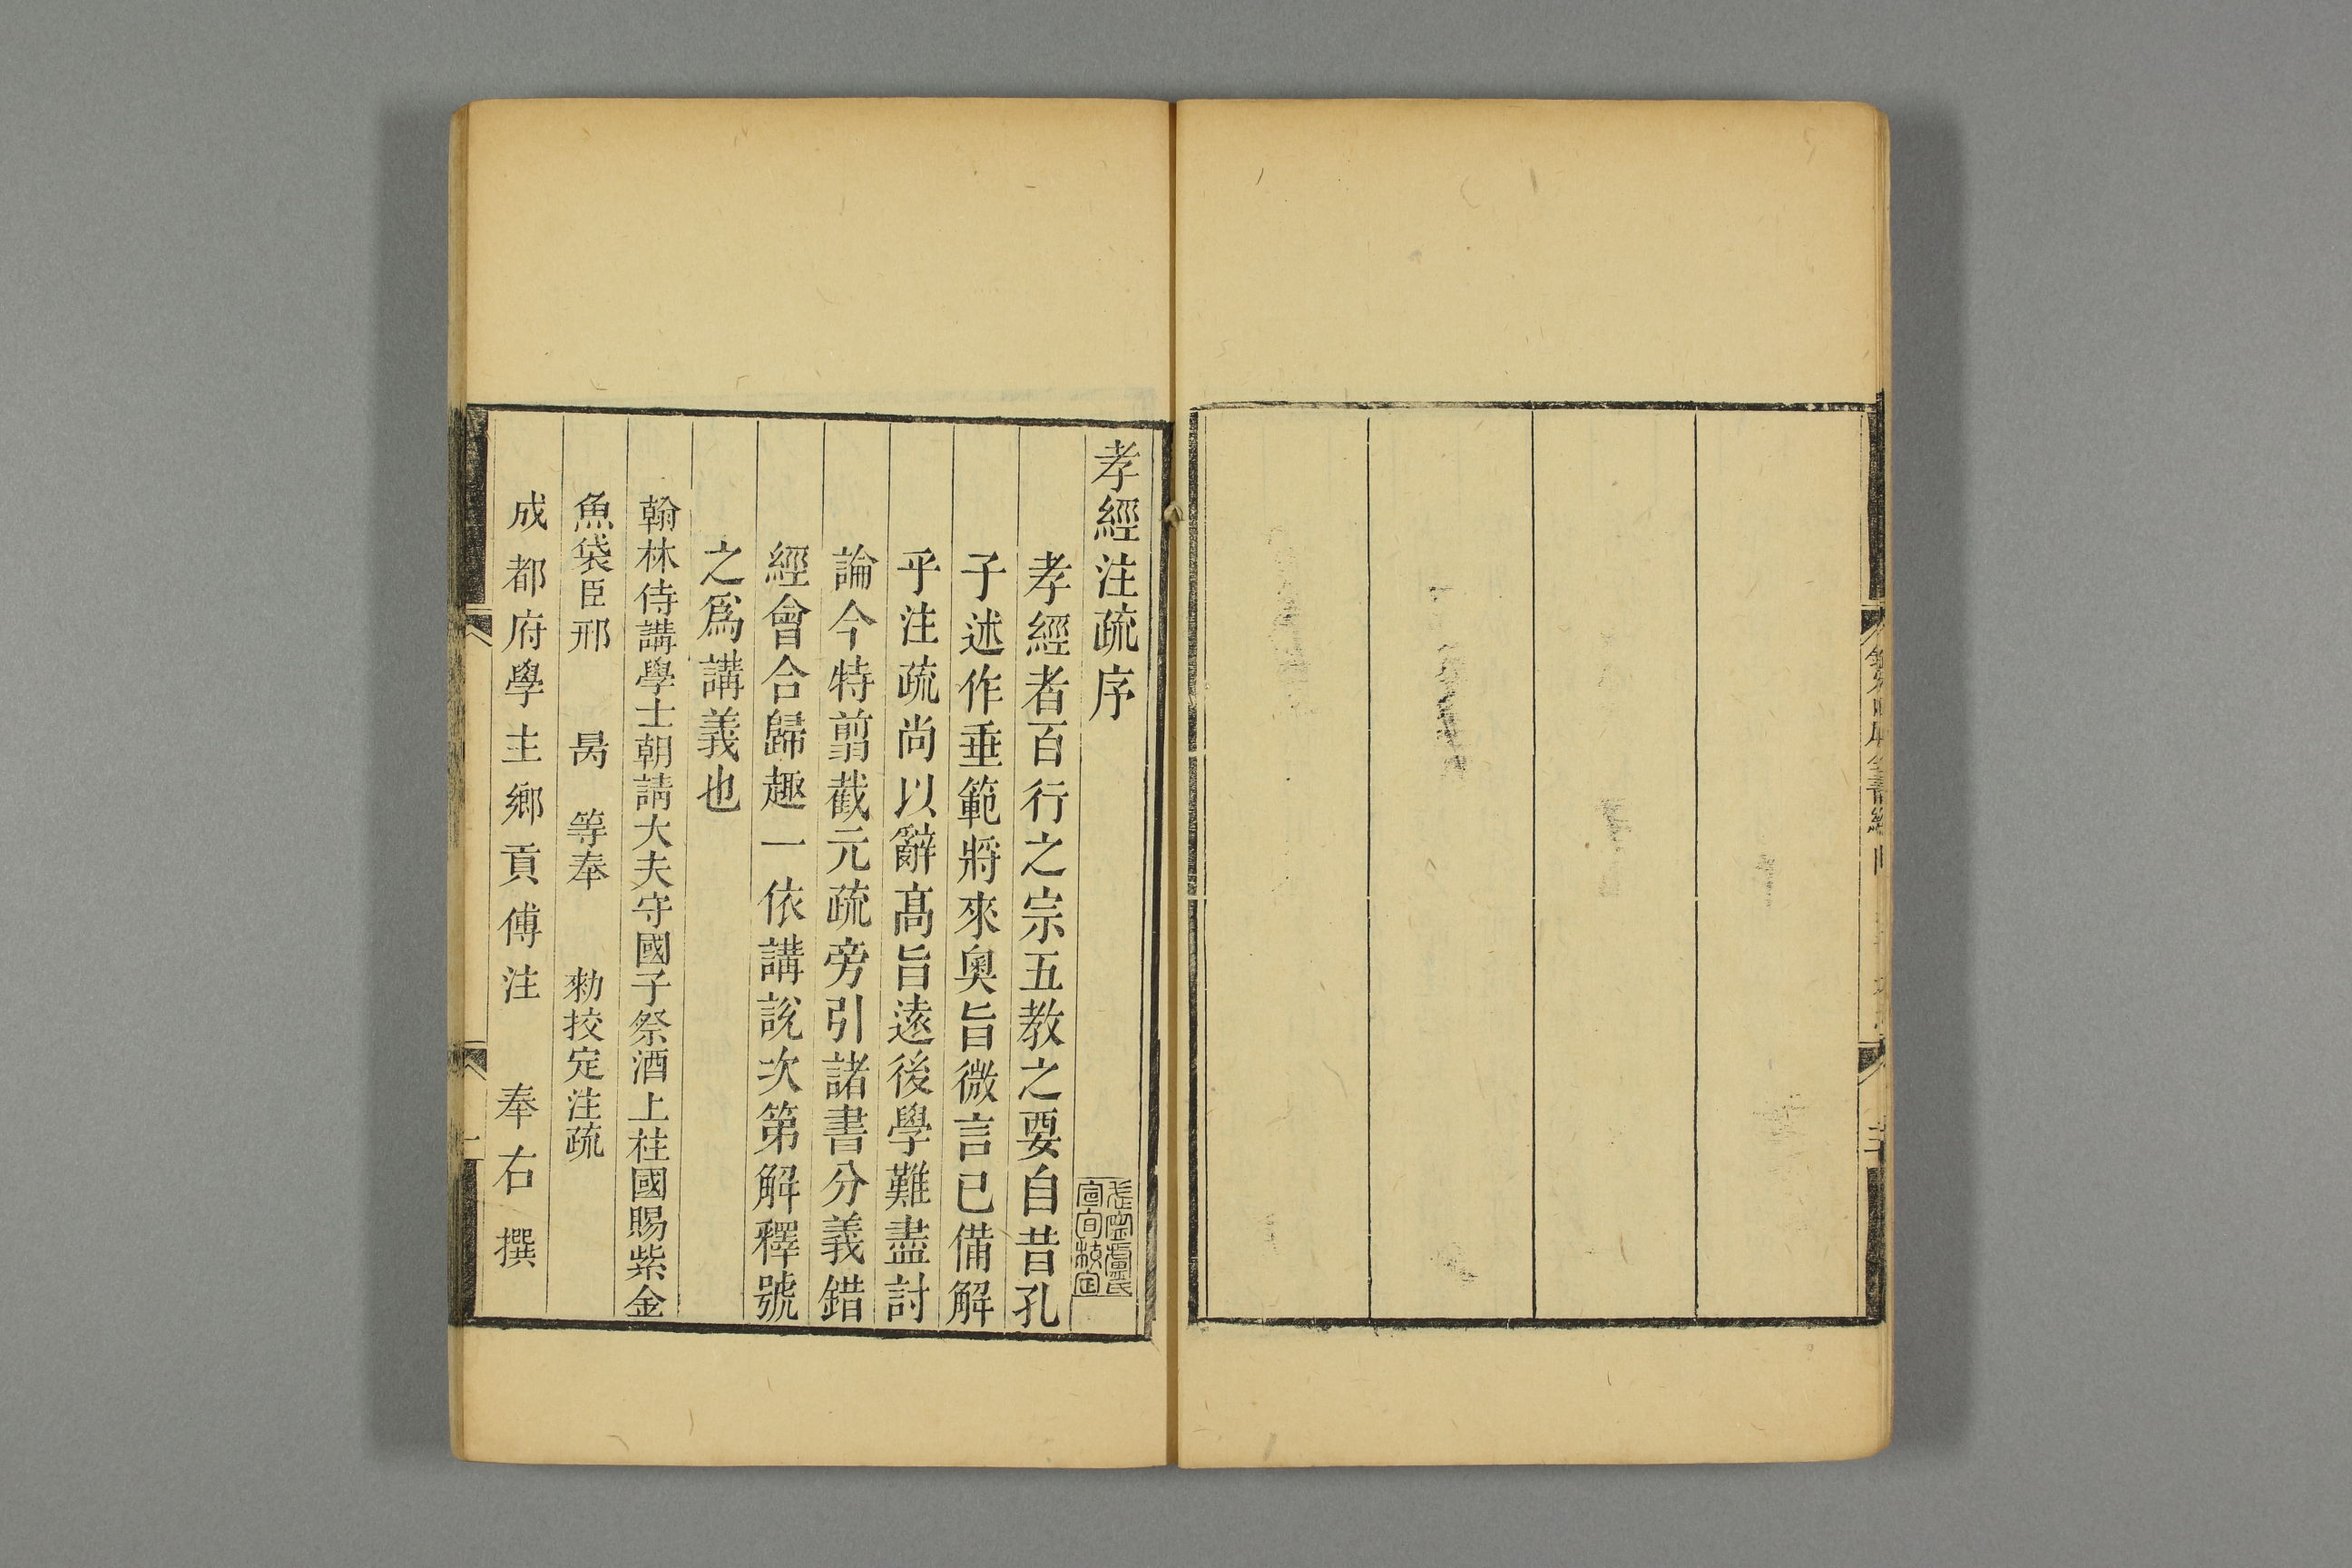 孝經注疏序
孝經者百行之宗五教之要自昔孔
子述作垂範將來奧旨微言已備解
乎注疏尚以辭高旨遠後學難盡討
論今特翦截元疏旁引諸書分義錯
經會合歸趣一依講說次第解釋號
之爲講義也
翰林侍講學士朝請大夫守國子祭酒上柱國賜紫金
魚袋臣邢昺等奉勑挍定注疏
成都府學主鄉貢傅注奉右撰